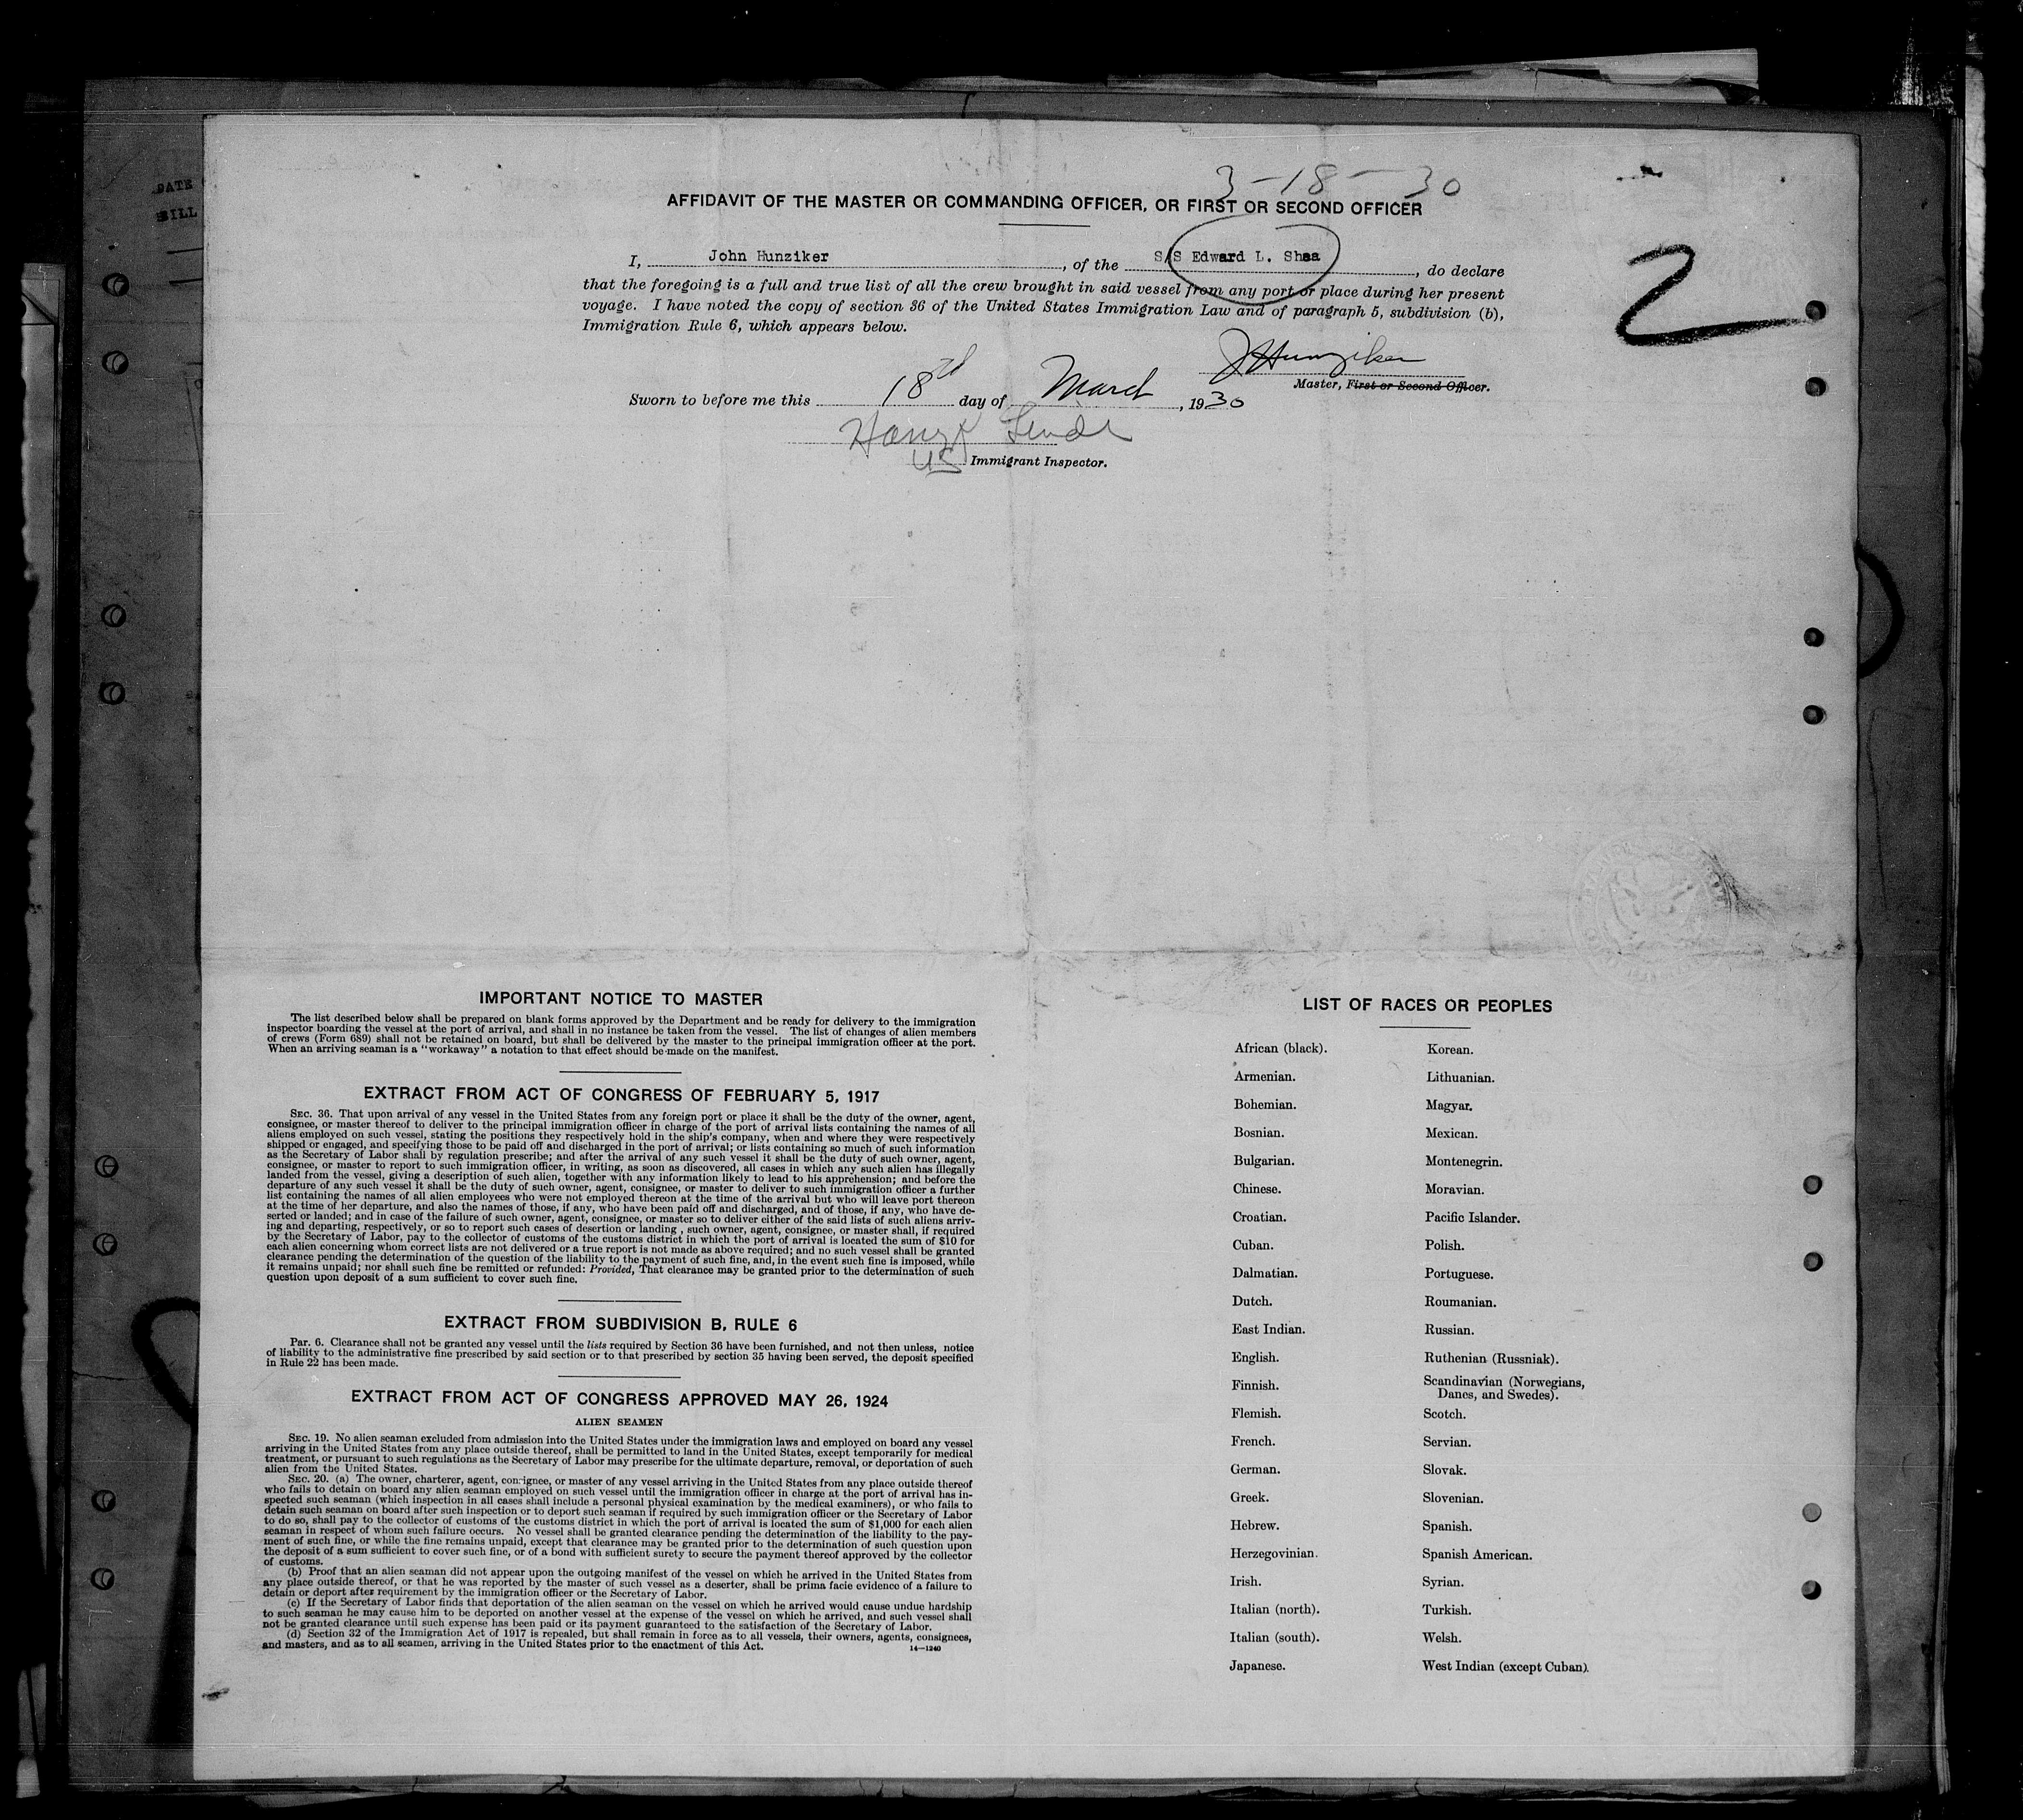 DATE
BILL
3-18-30
AFFIDAVIT OF THE MASTER OR COMMANDING OFFICER, OR FIRST OR SECOND OFFICER
I, John Hunziker, of the S/S Edward L. Shea, do declare
that the foregoing is a full and true list of all the crew brought in said vessel from any port or place during her present
voyage. I have noted the copy of section 36 of the United States Immigration Law and of paragraph 5, subdivision (b),
Immigration Rule 6, which appears below.
2
J Hunziker
Master, First or Second Officer.
Sworn to before me this 18th day of March, 1930
US Immigrant Inspector.
IMPORTANT NOTICE TO MASTER
The list described below shall be prepared on blank forms approved by the Department and be ready for delivery to the immigration
inspector boarding the vessel at the port of arrival, and shall in no instance be taken from the vessel. The list of changes of alien members
of crews (Form 689) shall not be retained on board, but shall be delivered by the master to the principal immigration officer at the port.
When an arriving seaman is a "workaway" a notation to that effect should be made on the manifest.
EXTRACT FROM ACT OF CONGRESS OF FEBRUARY 5, 1917
SEC. 36. That upon arrival of any vessel in the United States from any foreign port or place it shall be the duty of the owner, agent,
consignee, or master thereof to deliver to the principal immigration officer in charge of the port of arrival lists containing the names of all
aliens employed on such vessel, stating the positions they respectively hold in the ship's company, when and where they were respectively
shipped or engaged, and specifying those to be paid off and discharged in the port of arrival; or lists containing so much of such information
as the Secretary of Labor shall by regulation prescribe; and after the arrival of any such vessel it shall be the duty of such owner, agent,
consignee, or master to report to such immigration officer, in writing, as soon as discovered, all cases in which any such alien has illegally
landed from the vessel, giving a description of such alien, together with any information likely to lead to his apprehension; and before the
departure of any such vessel it shall be the duty of such owner, agent, consignee, or master to deliver to such immigration officer a further
list containing the names of all alien employees who were not employed thereon at the time of the arrival but who will leave port thereon
at the time of her departure, and also the names of those, if any, who have been paid off and discharged, and of those, if any, who have de-
serted or landed; and in case of the failure of such owner, agent, consignee, or master so to deliver either of the said lists of such aliens arriv-
ing and departing, respectively, or so to report such cases of desertion or landing , such owner, agent, consignee, or master shall, if required
by the Secretary of Labor, pay to the collector of customs of the customs district in which the port of arrival is located the sum of $10 for
each alien concerning whom correct lists are not delivered or a true report is not made as above required; and no such vessel shall be granted
clearance pending the determination of the question of the liability to the payment of such fine, and, in the event such fine is imposed, while
it remains unpaid; nor shall such fine be remitted or refunded: Provided, That clearance may be granted prior to the determination of such
question upon deposit of a sum sufficient to cover such fine.
EXTRACT FROM SUBDIVISION B, RULE 6
Par. 6. Clearance shall not be granted any vessel until the lists required by Section 36 have been furnished, and not then unless, notice
of liability to the administrative fine prescribed by said section or to that prescribed by section 35 having been served, the deposit specified
in Rule 22 has been made.
EXTRACT FROM ACT OF CONGRESS APPROVED MAY 26, 1924
ALIEN SEAMEN
SEC. 19. No alien seaman excluded from admission into the United States under the immigration laws and employed on board any vessel
arriving in the United States from any place outside thereof, shall be permitted to land in the United States, except temporarily for medical
treatment, or pursuant to such regulations as the Secretary of Labor may prescribe for the ultimate departure, removal, or deportation of such
alien from the United States.
SEC. 20. (a) The owner, charterer, agent, consignee, or master of any vessel arriving in the United States from any place outside thereof
who fails to detain on board any alien seaman employed on such vessel until the immigration officer in charge at the port of arrival has in-
spected such seaman (which inspection in all cases shall include a personal physical examination by the medical examiners), or who fails to
detain such seaman on board after such inspection or to deport such seaman if required by such immigration officer or the Secretary of Labor
to do so, shall pay to the collector of customs of the customs district in which the port of arrival is located the sum of $1,000 for each alien
seaman in respect of whom such failure occurs. No vessel shall be granted clearance pending the determination of the liability to the pay-
ment of such fine, or while the fine remains unpaid, except that clearance may be granted prior to the determination of such question upon
the deposit of a sum sufficient to cover such fine, or of a bond with sufficient surety to secure the payment thereof approved by the collector
of customs.
(b) Proof that an alien seaman did not appear upon the outgoing manifest of the vessel on which he arrived in the United States from
any place outside thereof, or that he was reported by the master of such vessel as a deserter, shall be prima facie evidence of a failure to
detain or deport after requirement by the immigration officer or the Secretary of Labor.
(c) If the Secretary of Labor finds that deportation of the alien seaman on the vessel on which he arrived would cause undue hardship
to such seaman he may cause him to be deported on another vessel at the expense of the vessel on which he arrived, and such vessel shall
not be granted clearance until such expense has been paid or its payment guaranteed to the satisfaction of the Secretary of Labor.
(d) Section 32 of the Immigration Act of 1917 is repealed, but shall remain in force as to all vessels, their owners, agents, consignees,
and masters, and as to all seamen, arriving in the United States prior to the enactment of this Act.
14—1240
LIST OF RACES OR PEOPLES
African (black).
Armenian.
Bohemian.
Bosnian.
Bulgarian.
Chinese.
Croatian.
Cuban.
Dalmatian.
Dutch.
East Indian.
English.
Finnish.
Flemish.
French.
German.
Greek.
Hebrew.
Herzegovinian.
Irish.
Italian (north).
Italian (south).
Japanese.
Korean.
Lithuanian.
Magyar.
Mexican.
Montenegrin.
Moravian.
Pacific Islander.
Polish.
Portuguese.
Roumanian.
Russian.
Ruthenian (Russniak).
Scandinavian (Norwegians,
Danes, and Swedes).
Scotch.
Servian.
Slovak.
Slovenian.
Spanish.
Spanish American.
Syrian.
Turkish.
Welsh.
West Indian (except Cuban).